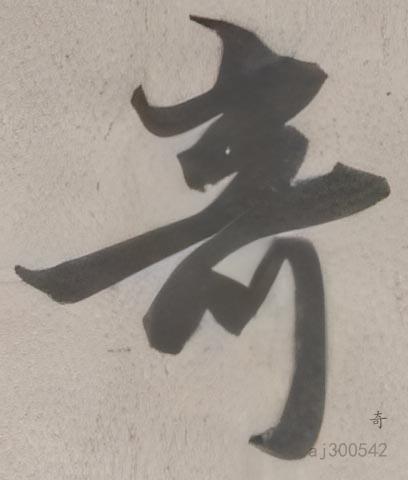 奇
奇
aj300542